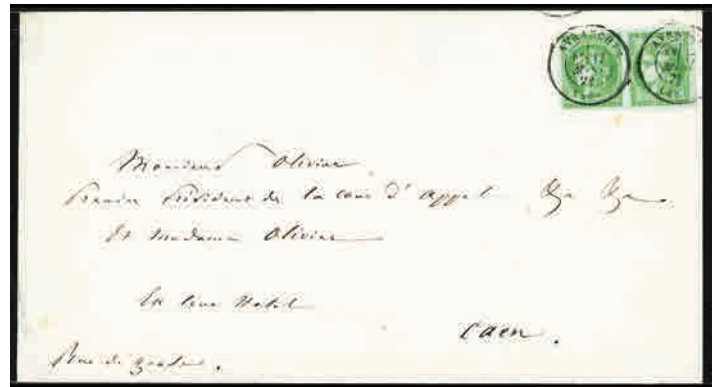 AVRANCHES
Monsieur Olivier
Premier Président de la cour d'appel
Et Madame Olivier
En leur Hotel
Caen.
Rue de